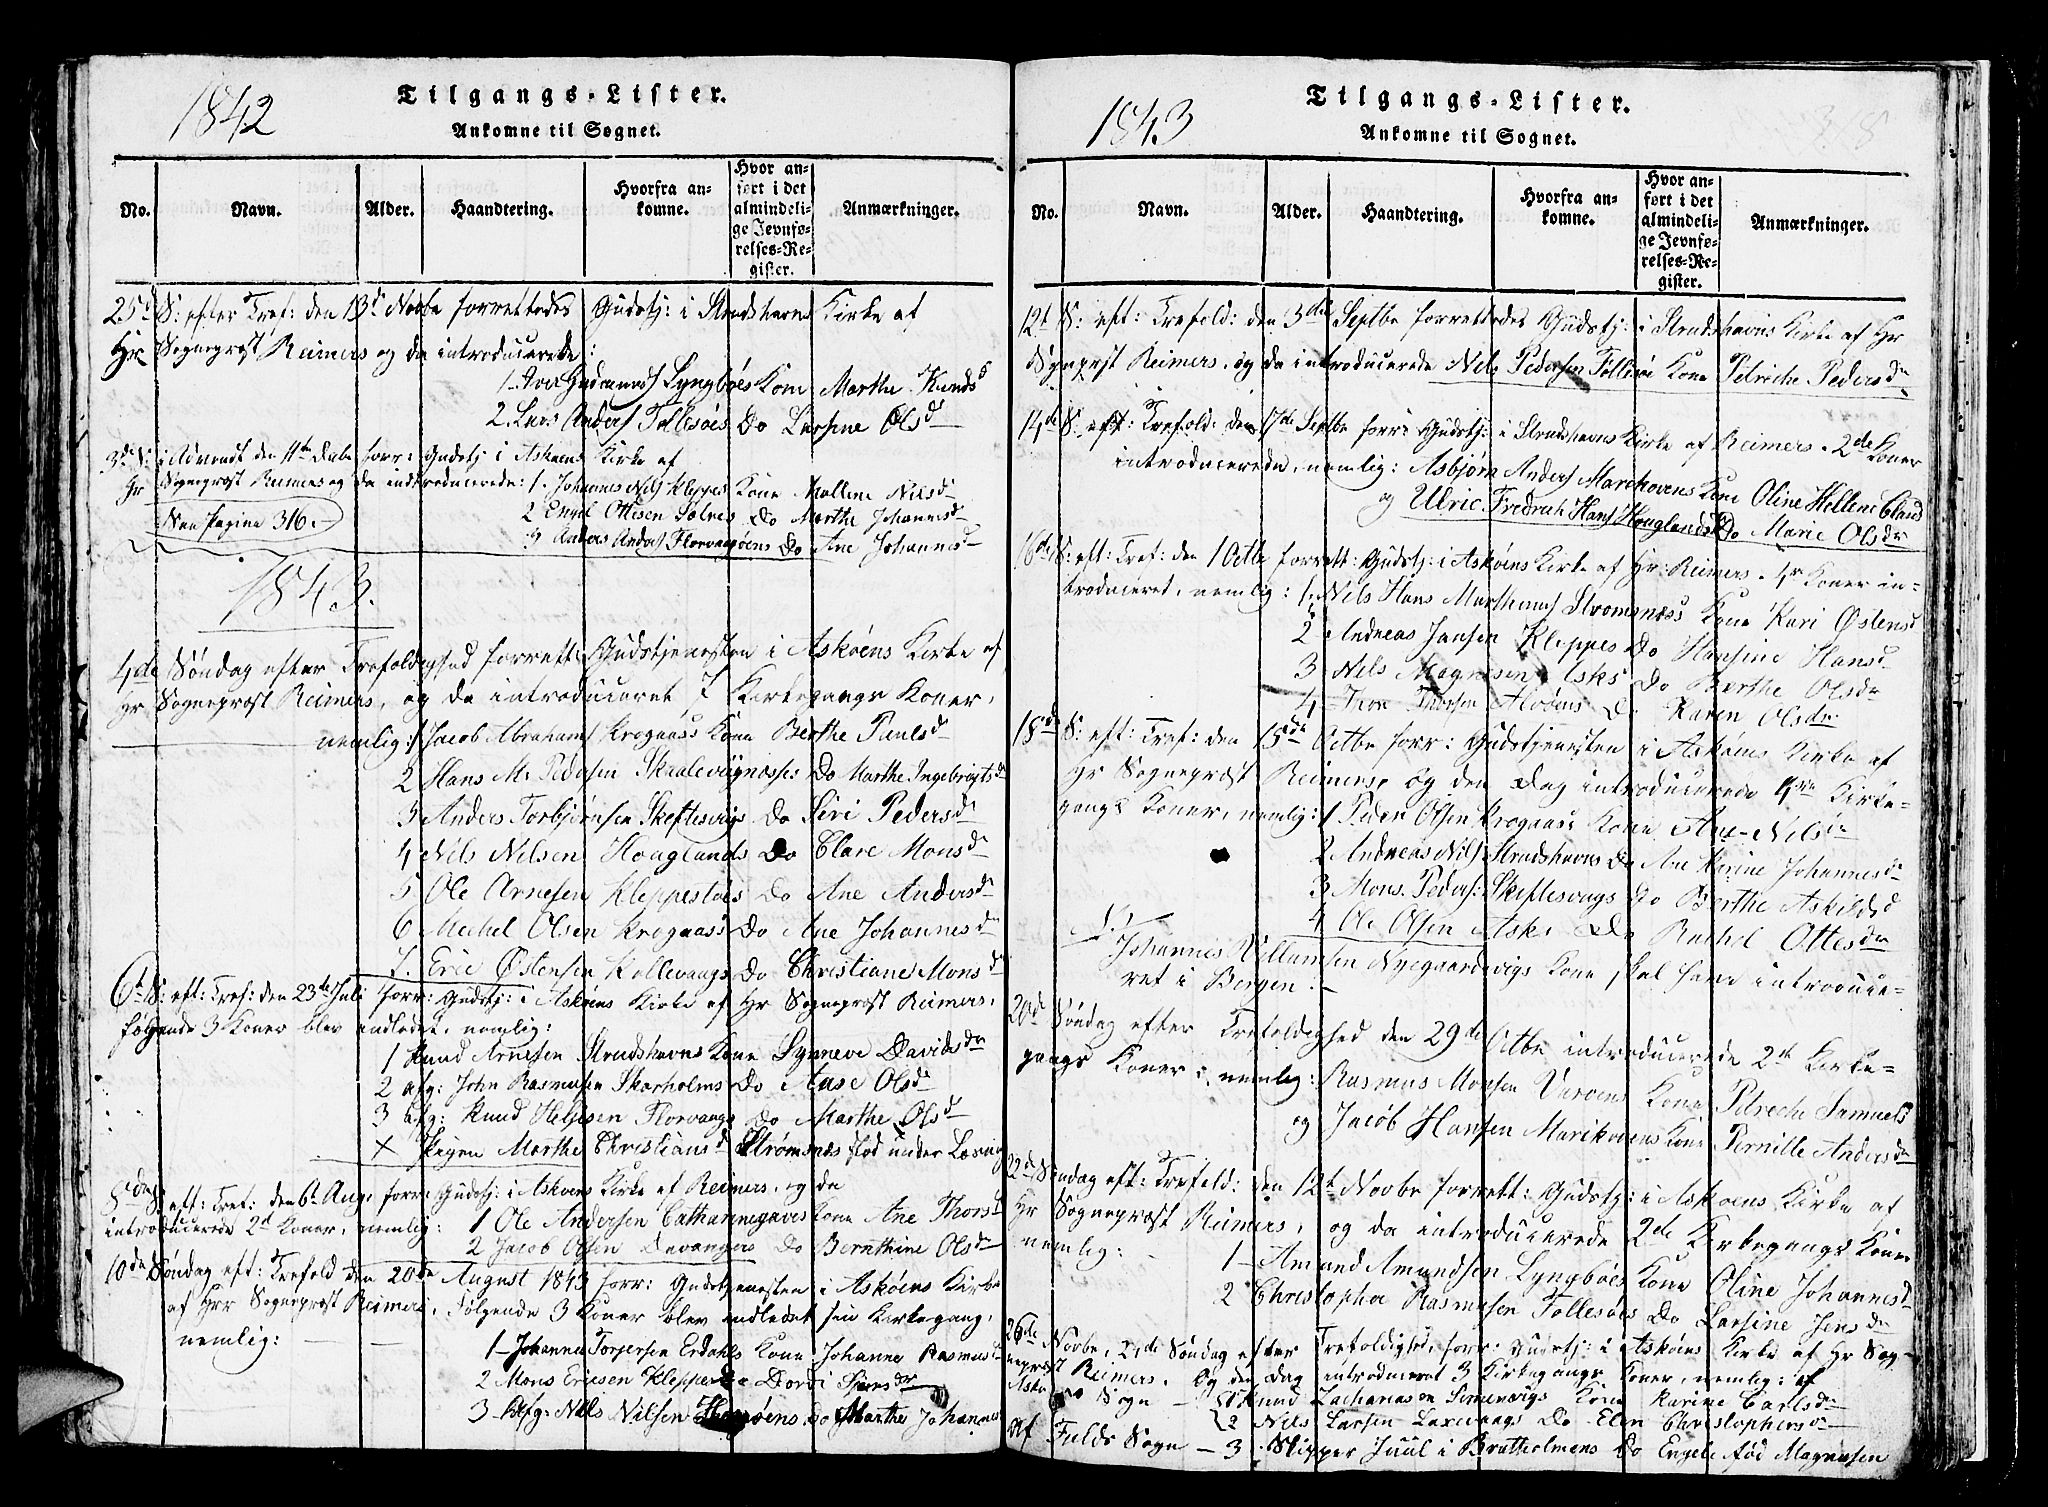 1842
Tilgangs-Lister.
Ankomne til Sognet.
No.
Navn.
Alder.
Haandtering.
Hvorfra an-
komne.
Hvor an-
ført i det
almindeli-
ge Jevnfø-
relses-Re-
gister.
Anmærkninger.
25d S: efter Tref: den 13d Novbe forrettedes Gudstj: i Strudshavns Kirke af
Hr Sognepræst Reimers og da introducerede:
1. Gudmunds Lyngbøes Kone Marthe Knudsd
2. Lars Anders Follesøes Do Larsine Olsd
3de S: i Advendt den 11te Decbe forr: Gudstj: i Askøens Kirke af
Hr Sognepræst Reimers og da introducerede: 1. Johannes Nils Kleppes Kone Mallene Nilsd
2 Engel Ottesen Solnes Do Marthe Johannisd
3 Anders Anders Florvaagøens Do Ane Johannesd
See Pagina 316.
1843.
4de Søndag efter Trefoldighed forrett: Gudstjenesten i Askøens Kirke af
Hr Sognepræst Reimers, og da introduceret 7 Kirkegangs Koner,
nemlig: 1 Jacob Abrahams Krogaass Kone Berthe Paulsd
2 Hans M. Pedersen Skraalevignæsses Do Marthe Ingebrigtsd
3 Anders Torbjørnsen Skeftesvigs Do Siri Pedersd
4 Nils Nilsen Houglands Do Clare Monsd
5 Ole Arnesen Kleppestøes Do Ane Andersd
6 Michel Olsen Krogaass Do Ane Johannesd
7. Eric Østensen Kollevaags Do Christiane Monsd
6t S: eft: Tref: den 23de Juli forr: Gudstj: i Askøens Kirke af Hr Sognepræst Reimers,
følgende 3 Koner blev indledet, nemlig:
1 Knud Arnesen Strudshavns Kone Synneve Davidsdr
2 afg: John Rasmusen Skarholms Do Aase Olsd
3 afg: Knud Helgesen Florvaags Do Marthe Olsd
X Pigen Marthe Christiansd Strømsnæs stod under Læsning
8de S: eft: Tref: den 6t Aug. forr: Gudstj: i Askøens Kirke af Reimers, og da
introducerede 2d Koner, nemlig: 1 Ole Andersen Catharinegaves Kone Ane Thorsd
2 Jacob Olsen Davangers Do Bernthine Olsd
10de Søndag eft: Trefold den 20de August 1843 forr: Gudstjenesten i Askøens Kirke
af Hrr Sognepræst Reimers, Følgende 3 Koner blev indledet sin Kirkegang,
nemlig:
1 Johannes Torgersen Erdahls Kone Johanne Rasmusd
2 Mons Ericsen Kleppe Do Dordi
3 Afg: Nils Nilsen Do Marthe Johannes
1843
Tilgangs-Lister.
Ankomne til Sognet.
No.
Navn.
Alder.
Haandtering.
Hvorfra an-
komne.
Hvor an-
ført i det
almindeli-
ge Jevnfø-
relses-Re-
gister.
Anmærkninger.
12t S: eft: Trefold: den 3die Septbe forrettedes Gudstj: i Strudshavns Kirke af Hr
Sognpræst Reimers, og da introducerede Nils Pedersen Follesøe Kone Petriche Pedersdr
14de S: eft: Trefold: den 17de Septbe forr: Gudstj: i Strudshavns Kirke af Reimers. 2de Koner
introducerede, nemlig: Asbjørn Anders Marchovens Kone Oline Hellene Claus
og Ulric Fredrich Hans Houglands Do Marie Olsdr
16de S: eft: Tref: den 1 Octbe forrett: Gudstj: i Askøens Kirke af Hr: Reimers. 4r Koner in-
troduceret, nemlig: 1. Nils Hans Marthinus Stromsnæss Kone Kari Østensd
2 Andreas Jansen Kleppes Do Hansine Hansd
3 Nils Magnesen Asks Do Berthe Olsdr
4 Thore Thorsen Alvøens Do Karen Olsdr
18d S: eft: Tref: den 15de Octbe forr: Gudstjenesten i Askøens Kirke af
Hr Sognepræst Reimers, og den Dag introducerede 4re Kirke-
gangs Koner, nemlig: 1 Peder Olsen Krogaass Kone Ane Nilsdr
2 Andreas Nils Strudshavns Do Ane Karine Johannesd
3 Mons Peders: Skeftesvugs Do Berthe Askilds d
4 Ole Olsen Aske Do Rachel Ottesdr
Johannes Villumsen Nyegaardsvigs Kone skal have introduce-
ret i Bergen.
20d Søndag efter Trefoldighed den 29de Octbe introducerede 2de Kirke-
gangs Koner, nemlig: Rasmus Monsen Kone Petreche Samuelsd
og Jacob Hansen Marikovens Kone Pernille Andersdr
22d Søndag eft: Trefold: den 12t Novbe forrett: Gudstj: i Askøens Kirke af
Hr Sognepræst Reimers, og da introducerede 2de Kirkegangs Koner
nemlig:
1 Amund Amundsen Lyngbøes Kone Oline Johannesd
2 Christopher Rasmusen Follesøes Do Larsine Jensdr
26de Novbe, 24de Søndag efter Trefoldighed, forr: Gudstj: i Askøens Kirke af Hr Sog-
nepræst Reimers. Og den Dag introduceret 3 Kirkegangs Koner, nemlig: af
Askøens Sogn 1 Knud Zachariasen Simensvigs Kone Karine Carlsdr
2 Nils Larsen Laxevaags Do Elen Christophersdr
Af Fields Sogn 3. Skipper Juul i Bratholmens Do Engele fød Magnusen